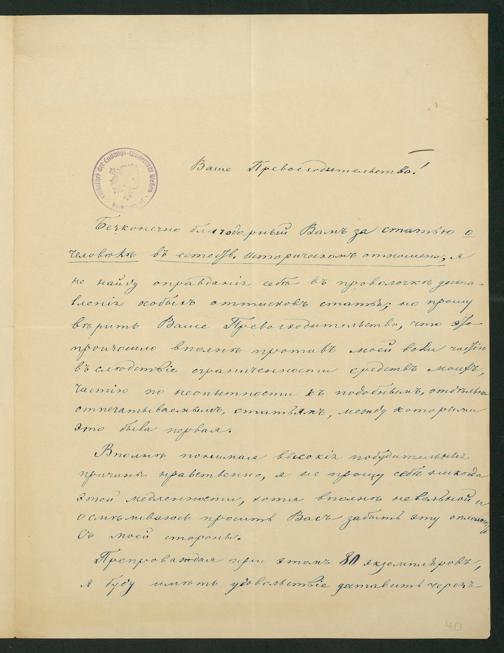 Ваше Превосходительство!
Безконечно благодарный Вамъ за статью о
человѣкѣ въ естеств. историческомъ отношеніи, я
не найду оправданія себѣ въ проволочкѣ доста-
вленія особыхъ оттисковъ статьи; но прошу
вѣрить Ваше Превосходительство, что это
произошло вполнѣ противъ моей воли частію
въ слѣдствіе ограниченности средствъ моихъ,
частію по неопытности къ подобнымъ, отдѣльно
отпечатываемымъ, статьямъ, между которыми
это была первая.
Вполнѣ понимая высокія побудительныя
причины нравственно, я не прощу себѣ никогда
этой медленности, хотя вполнѣ невольной и
осмѣливаюсь просить Васъ забыть эту
съ моей стороны.
Препровождая при этомъ 80 экземпляровъ,
я буду имѣть удовольствіе доставить чрезъ
40